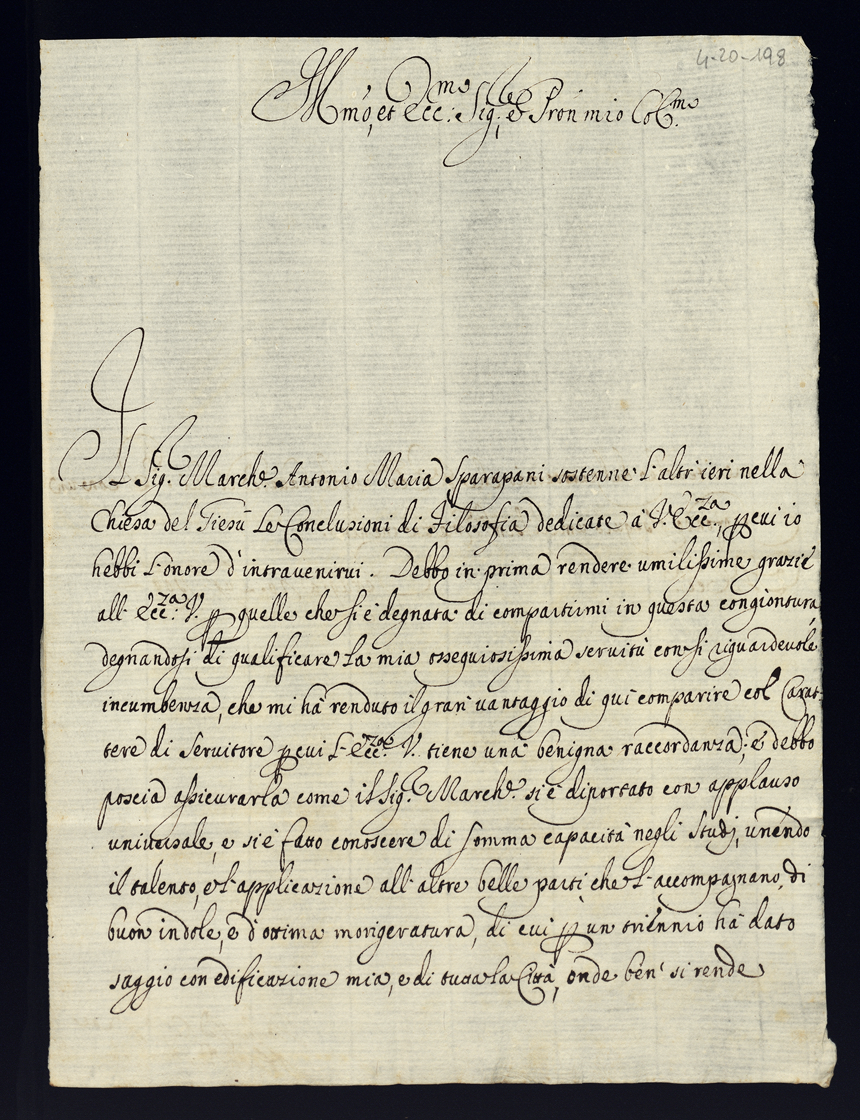 4-20-198
Ill.mo, et Ecc.mo Sig.re, e Pron mio Col.mo
Il Sig.r March.e Antonio Maria Sparapani sostenne l'altr'ieri nella
Chiesa del Giesù le Conclusioni di Filosofia dedicate à V. Ecc.za, p cui io
hebbi l'onore d'intravenirvi. Debbo in prima rendere umilissime grazie
all' Ecc.za V. p quelle che si è degnata di compartirmi in questa congiontura,
degnandosi di qualificare la mia ossequiosissima servitù con sì riguardevole
incumbenza, che mi hà renduto il gran vantaggio di qui comparire col Carat-
tere di Servitore p cui l'Ecc.za V. tiene una benigna raccordanza; e debbo
poscia assicurarla come il Sig.r March.e si è diportato con applauso
universale, e si è fatto conoscere di somma capacità negli Studj, unendo
il talento, e l'applicazione all' altre belle parti che l'accompagnano, di
buon indole, e d'ottima morigeratura, di cui p un triennio hà dato
saggio con edificazione mia, e di tutta la Città, onde ben si rende